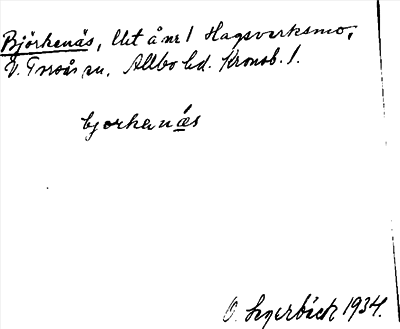 Björkenäs, lht å nr 1 Hagsverksmo,
V. Torsås sn. Allbo hd. Kronob. l.
bjorkenäs
O. Lagerbäck 1934.